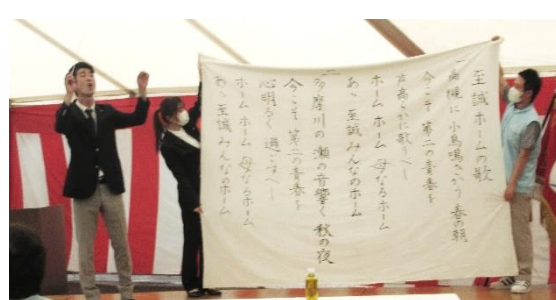 至誠ホームの歌
一
高幡に 小鳥鳴きかう 春の朝
今こそ 第二の青春を
声高らかに歌うべし
ホーム ホーム 母なるホーム
あゝ 至誠 みんなのホーム
二
多摩川の 瀬の音響く 秋の夜
今こそ 第二の青春を
心明るく 過ごすべし
ホーム ホーム 母なるホーム
あゝ 至誠 みんなのホーム